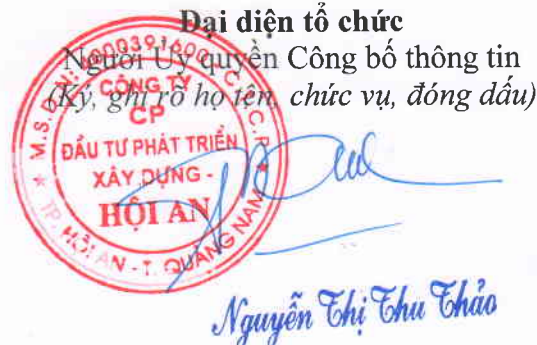 Đại diện tổ chức
Người Uỷ quyền Công bố thông tin
(Ký, ghi rõ họ tên, chức vụ, đóng dấu)
CÔNG TY
CP
ĐẦU TƯ PHÁT TRIỂN
XÂY DỰNG -
HỘI AN
TP. HỘI AN - T. QUẢNG NAM
Nguyễn Thị Thu Thảo